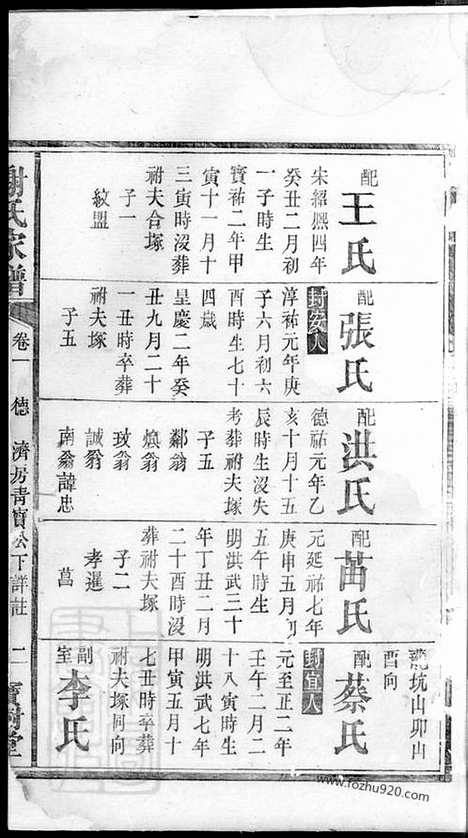 配
王氏
宋紹熙四年
癸丑二月初
一子時生
寶祐二年甲
寅十一月十
三寅時沒葬
祔夫合塚
子一
紋盟
配
張氏
封安人
淳祐元年庚
子六月初六
酉時生七十
四歲
皇慶二年癸
丑九月二十
一丑時卒葬
祔夫塚
子五
配
洪氏
德祐元年乙
亥十月十五
辰時生沒失
考葬祔夫塚
子五
鄰翁
煥翁
玫翁
誠翁
南翁諱忠
配
苗氏
元延祐七年
庚申五月初
五午時生
明洪武三十
年丁丑二月
二十酉時沒
葬祔夫塚
子二
孝暹
菖
龍坑山卯山
酉向
配
蔡氏
封宜人
元至正二年
壬午二月二
十八寅時生
明洪武七年
甲寅五月十
七丑時卒葬
祔夫塚同向
副室
李氏
謝氏家譜
卷一
德濟房青寶公下詳註
二
寶樹堂
www.fozhu920.com